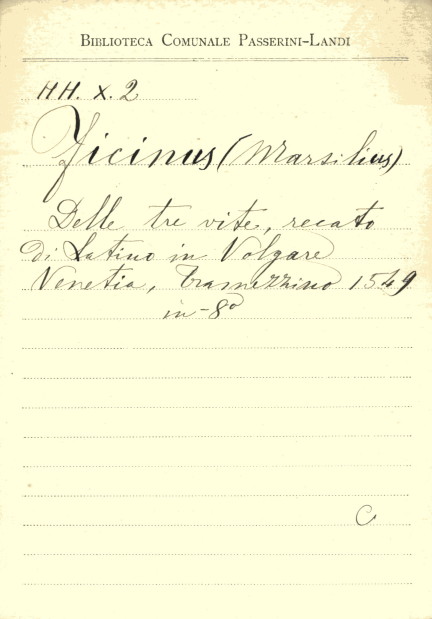 BIBLIOTECA COMUNALE PASSERINI-LANDI
HH. X. 2
Ficinus (Marsilius)
Delle tre vite, recato
di Latino in Volgare
Venetia, Tramezzino 1549
in-8º
C